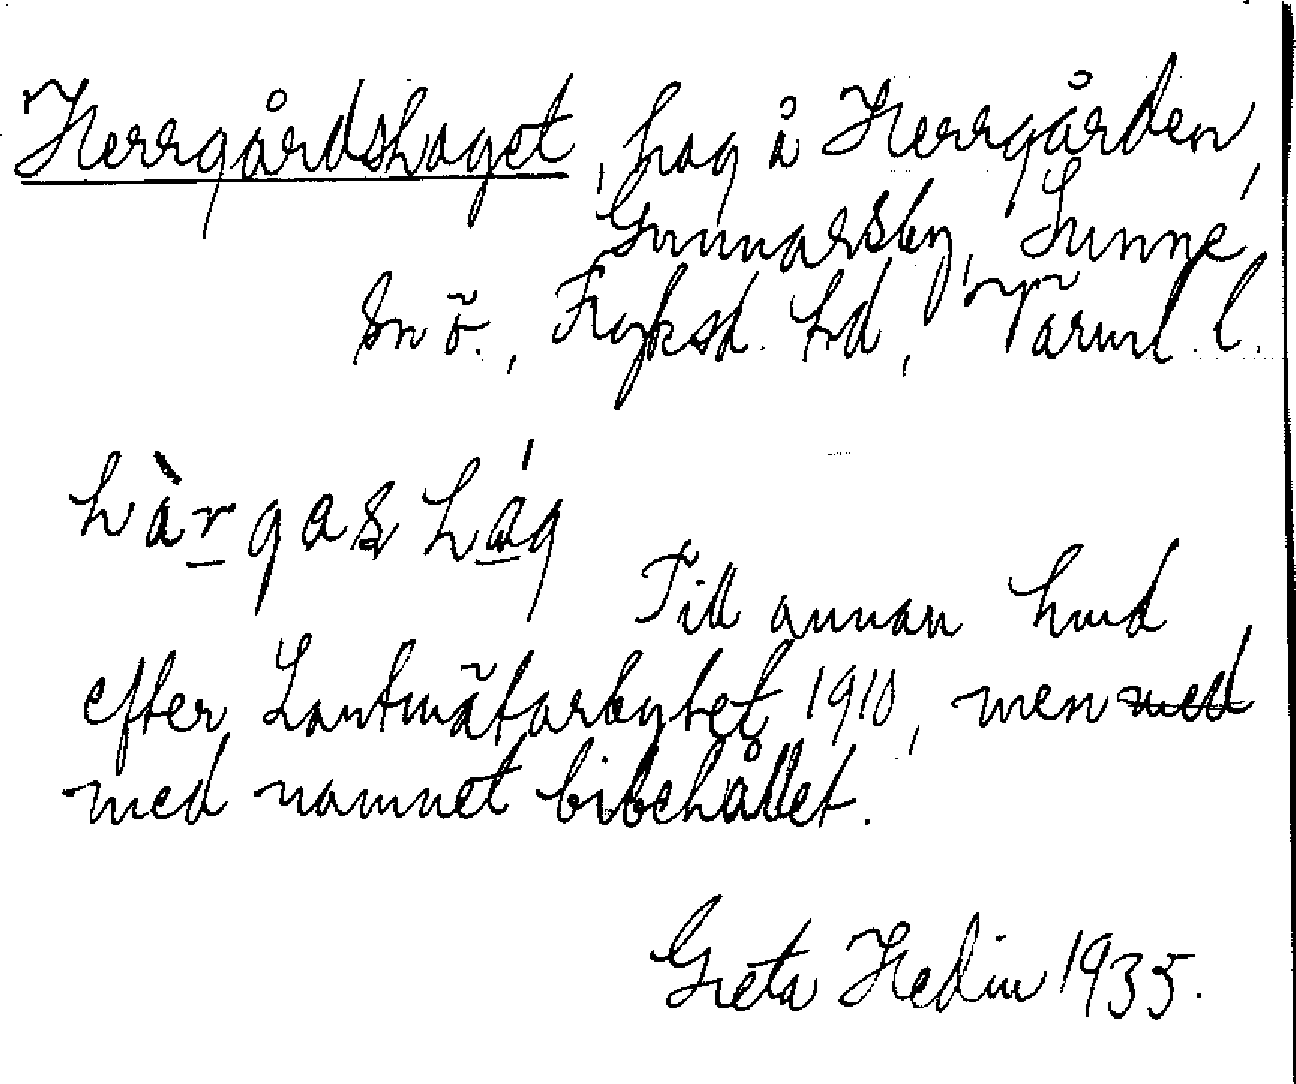 Herrgårdshaget, hag å Herrgården,
Gunnarsby, Sunne
sn ö., Fryksd. hd, Värml. l.
hàrgashág
Till annan hmd
efter Lantmätarbytet 1910, men med
med namnet bibehållet.
Greta Hedin 1935.